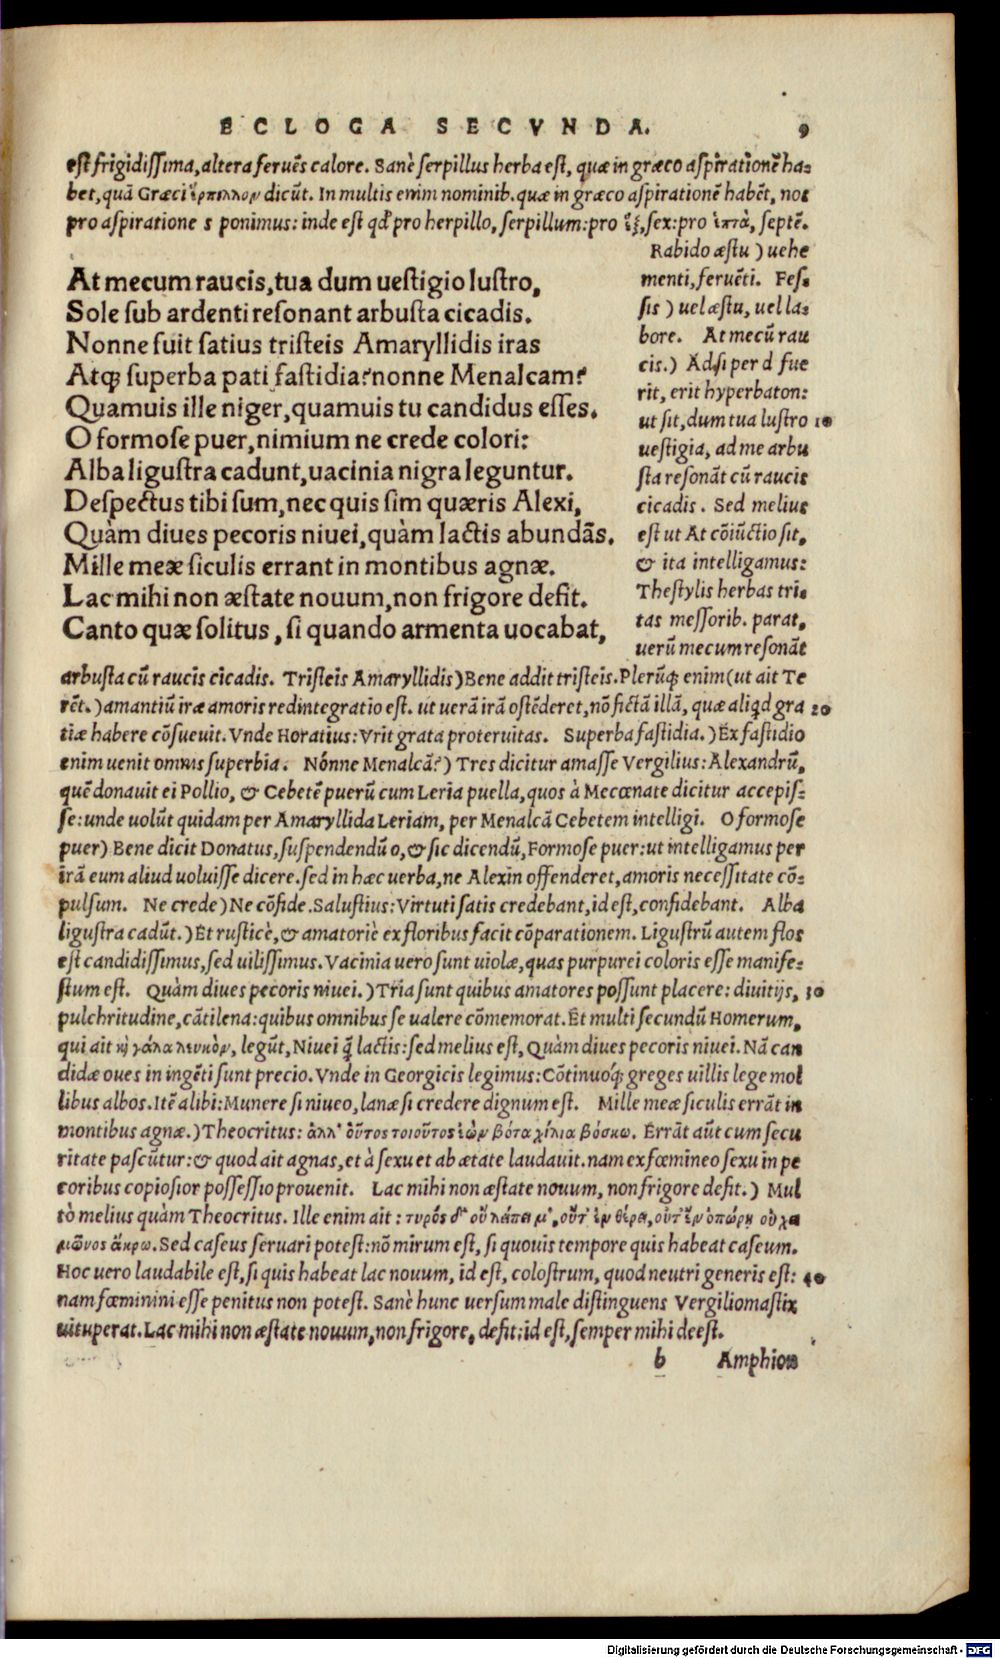 ECLOGA SECVNDA. 9
est frigidissima, altera feruēs calore. Sanè serpillus herba est, quæ in græco aspirationē ha-
bet, quā Græci ἕρπυλλον dicūt. In multis enim nominib. quæ in græco aspirationē habēt, nos
pro aspiratione s ponimus: inde est qđ pro herpillo, serpillum: pro ἕξ, sex: pro ἑπτὰ, septē.
At mecum raucis, tua dum uestigio lustro,
Sole sub ardenti resonant arbusta cicadis.
Nonne fuit satius tristeis Amaryllidis iras
Atq; superba pati fastidia? nonne Menalcam?
Quamuis ille niger, quamuis tu candidus esses.
O formose puer, nimium ne crede colori:
Alba ligustra cadunt, uacinia nigra leguntur.
Despectus tibi sum, nec quis sim quæris Alexi,
Quàm diues pecoris niuei, quàm lactis abundās.
Mille meæ siculis errant in montibus agnæ.
Lac mihi non æstate nouum, non frigore defit.
Canto quæ solitus, si quando armenta uocabat,
Rabido æstu) uehe
menti, feruēti. Fes-
sis) uel æstu, uel la-
bore. At mecū rau
cis.) Ad, si per d fue
rit, erit hyperbaton:
ut sit, dum tua lustro 10
uestigia, ad me arbu
sta resonāt cū raucis
cicadis. Sed melius
est ut At cōiūctio sit,
& ita intelligamus:
Thestylis herbas tri-
tas messorib. parat,
uerū mecum resonāt
arbusta cū raucis cicadis. Tristeis Amaryllidis) Bene addit tristeis. Plerūq; enim (ut ait Te
rēt.) amantiū iræ amoris redintegratio est. ut uerā irā ostēderet, nō fictā illā, quæ aliqd gra 20
tiæ habere cōsueuit. Vnde Horatius: Vrit grata proteruitas. Superba fastidia.) Ex fastidio
enim uenit omnis superbia. Nónne Menalcā?) Tres dicitur amasse Vergilius: Alexandrū,
quē donauit ei Pollio, & Cebetē puerū cum Leria puella, quos à Mecœnate dicitur accepis-
se: unde uolūt quidam per Amaryllida Leriam, per Menalcā Cebetem intelligi. O formose
puer) Bene dicit Donatus, suspendendū o, & sic dicendū, Formose puer: ut intelligamus per
irā eum aliud uoluisse dicere. sed in hæc uerba, ne Alexin offenderet, amoris necessitate cō-
pulsum. Ne crede) Ne cōfide. Salustius: Virtuti satis credebant, id est, confidebant. Alba
ligustra cadūt.) Et rusticè, & amatoriè ex floribus facit cōparationem. Ligustrū autem flos
est candidissimus, sed uilissimus. Vacinia uero sunt uiolæ, quas purpurei coloris esse manife-
stum est. Quàm diues pecoris niuei.) Tria sunt quibus amatores possunt placere: diuitijs, 30
pulchritudine, cātilena: quibus omnibus se ualere cōmemorat. Et multi secundū Homerum,
qui ait κὴ γάλα λευκὸν, legūt, Niuei q̄ lactis: sed melius est, Quàm diues pecoris niuei. Nā can
didæ oues in ingēti sunt precio. Vnde in Georgicis legimus: Cōtinuo'q; greges uillis lege mol
libus albos. Itē alibi: Munere si niueo, lanæ si credere dignum est. Mille meæ siculis errāt in
montibus agnæ.) Theocritus: ἀλλ' οὗτος τοιοῦτος ἐὼν βότα χίλια βόσκω. Errāt aūt cum secu
ritate pascūtur: & quod ait agnas, et à sexu et ab ætate laudauit. nam ex fœmineo sexu in pe
coribus copiosior possessio prouenit. Lac mihi non æstate nouum, non frigore defit.) Mul
tò melius quàm Theocritus. Ille enim ait: τυρὸς δ' οὐ λείπει μ', οὔτ' ἐν θέρει, οὔτ' ἐν ὀπώρῃ οὐ χει
μῶνος ἄκρω. Sed caseus seruari potest: nō mirum est, si quouis tempore quis habeat caseum.
Hoc uero laudabile est, si quis habeat lac nouum, id est, colostrum, quod neutri generis est: 40
nam fœminini esse penitus non potest. Sanè hunc uersum male distinguens Vergiliomastix
uituperat. Lac mihi non æstate nouum, non frigore, defit: id est, semper mihi deest.
b Amphion
Digitalisierung gefördert durch die Deutsche Forschungsgemeinschaft - DFG